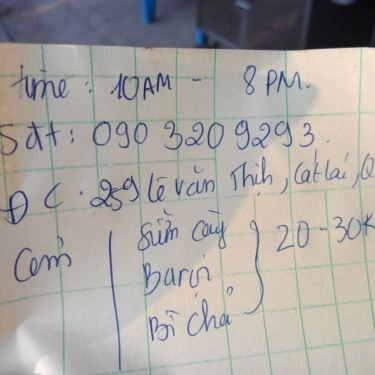 time : 10AM - 8PM.
Sđt : 090 320 9293.
ĐC : 259 Lê Văn Thịnh, Cát Lái, Q
Cơm
Sườn cây
Ba rọi
Bì chả
20 - 30K